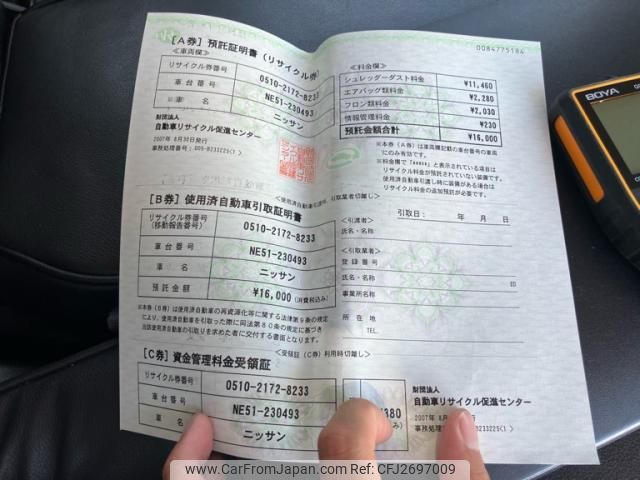 0084775184
[A券] 預託証明書 (リサイクル券)
≪車両欄≫
リサイクル券番号 0510-2172-8233
車台番号 NE51-230493
車名 ニッサン
財団法人
自動車リサイクル促進センター
2007年 8月30日発行
≪料金欄≫
シュレッダーダスト料金 ¥11,460
エアバッグ類料金 ¥2,280
フロン類料金 ¥2,030
情報管理料金 ¥230
預託金額合計 ¥16,000
※本券(A券)は車両欄記載の車台番号の車両
にのみ有効です。
※料金欄で「*****」と表示されている場合は
リサイクル料金が預託されていない装備です。
使用済自動車引渡し時に装備がある場合は
リサイクル料金の追加預託が必要です。
[B券] 使用済自動車引取証明書
リサイクル券番号
(移動報告番号) 0510-2172-8233
車台番号 NE51-230493
車名 ニッサン
預託金額 ¥16,000 (消費税込み)
引取日: 年 月 日
<引渡者>
氏名・名称
<引取業者>
登録番号
氏名・名称 印
事業所名称
所在地
TEL.
※本券(B券)は使用済自動車の再資源化等に関する法律第9条の規定
により、使用済自動車を引取った際に同法第80条の規定に基づき
当該使用済自動車の引取りを求めた者に交付する書面となります。
<受領証(C券)利用時切離し>
[C券] 資金管理料金受領証
リサイクル券番号 0510-2172-8233
車台番号 NE51-230493
車名 ニッサン
380
財団法人
自動車リサイクル促進センター
BOYA
www.CarFromJapan.com | CFJ2697009